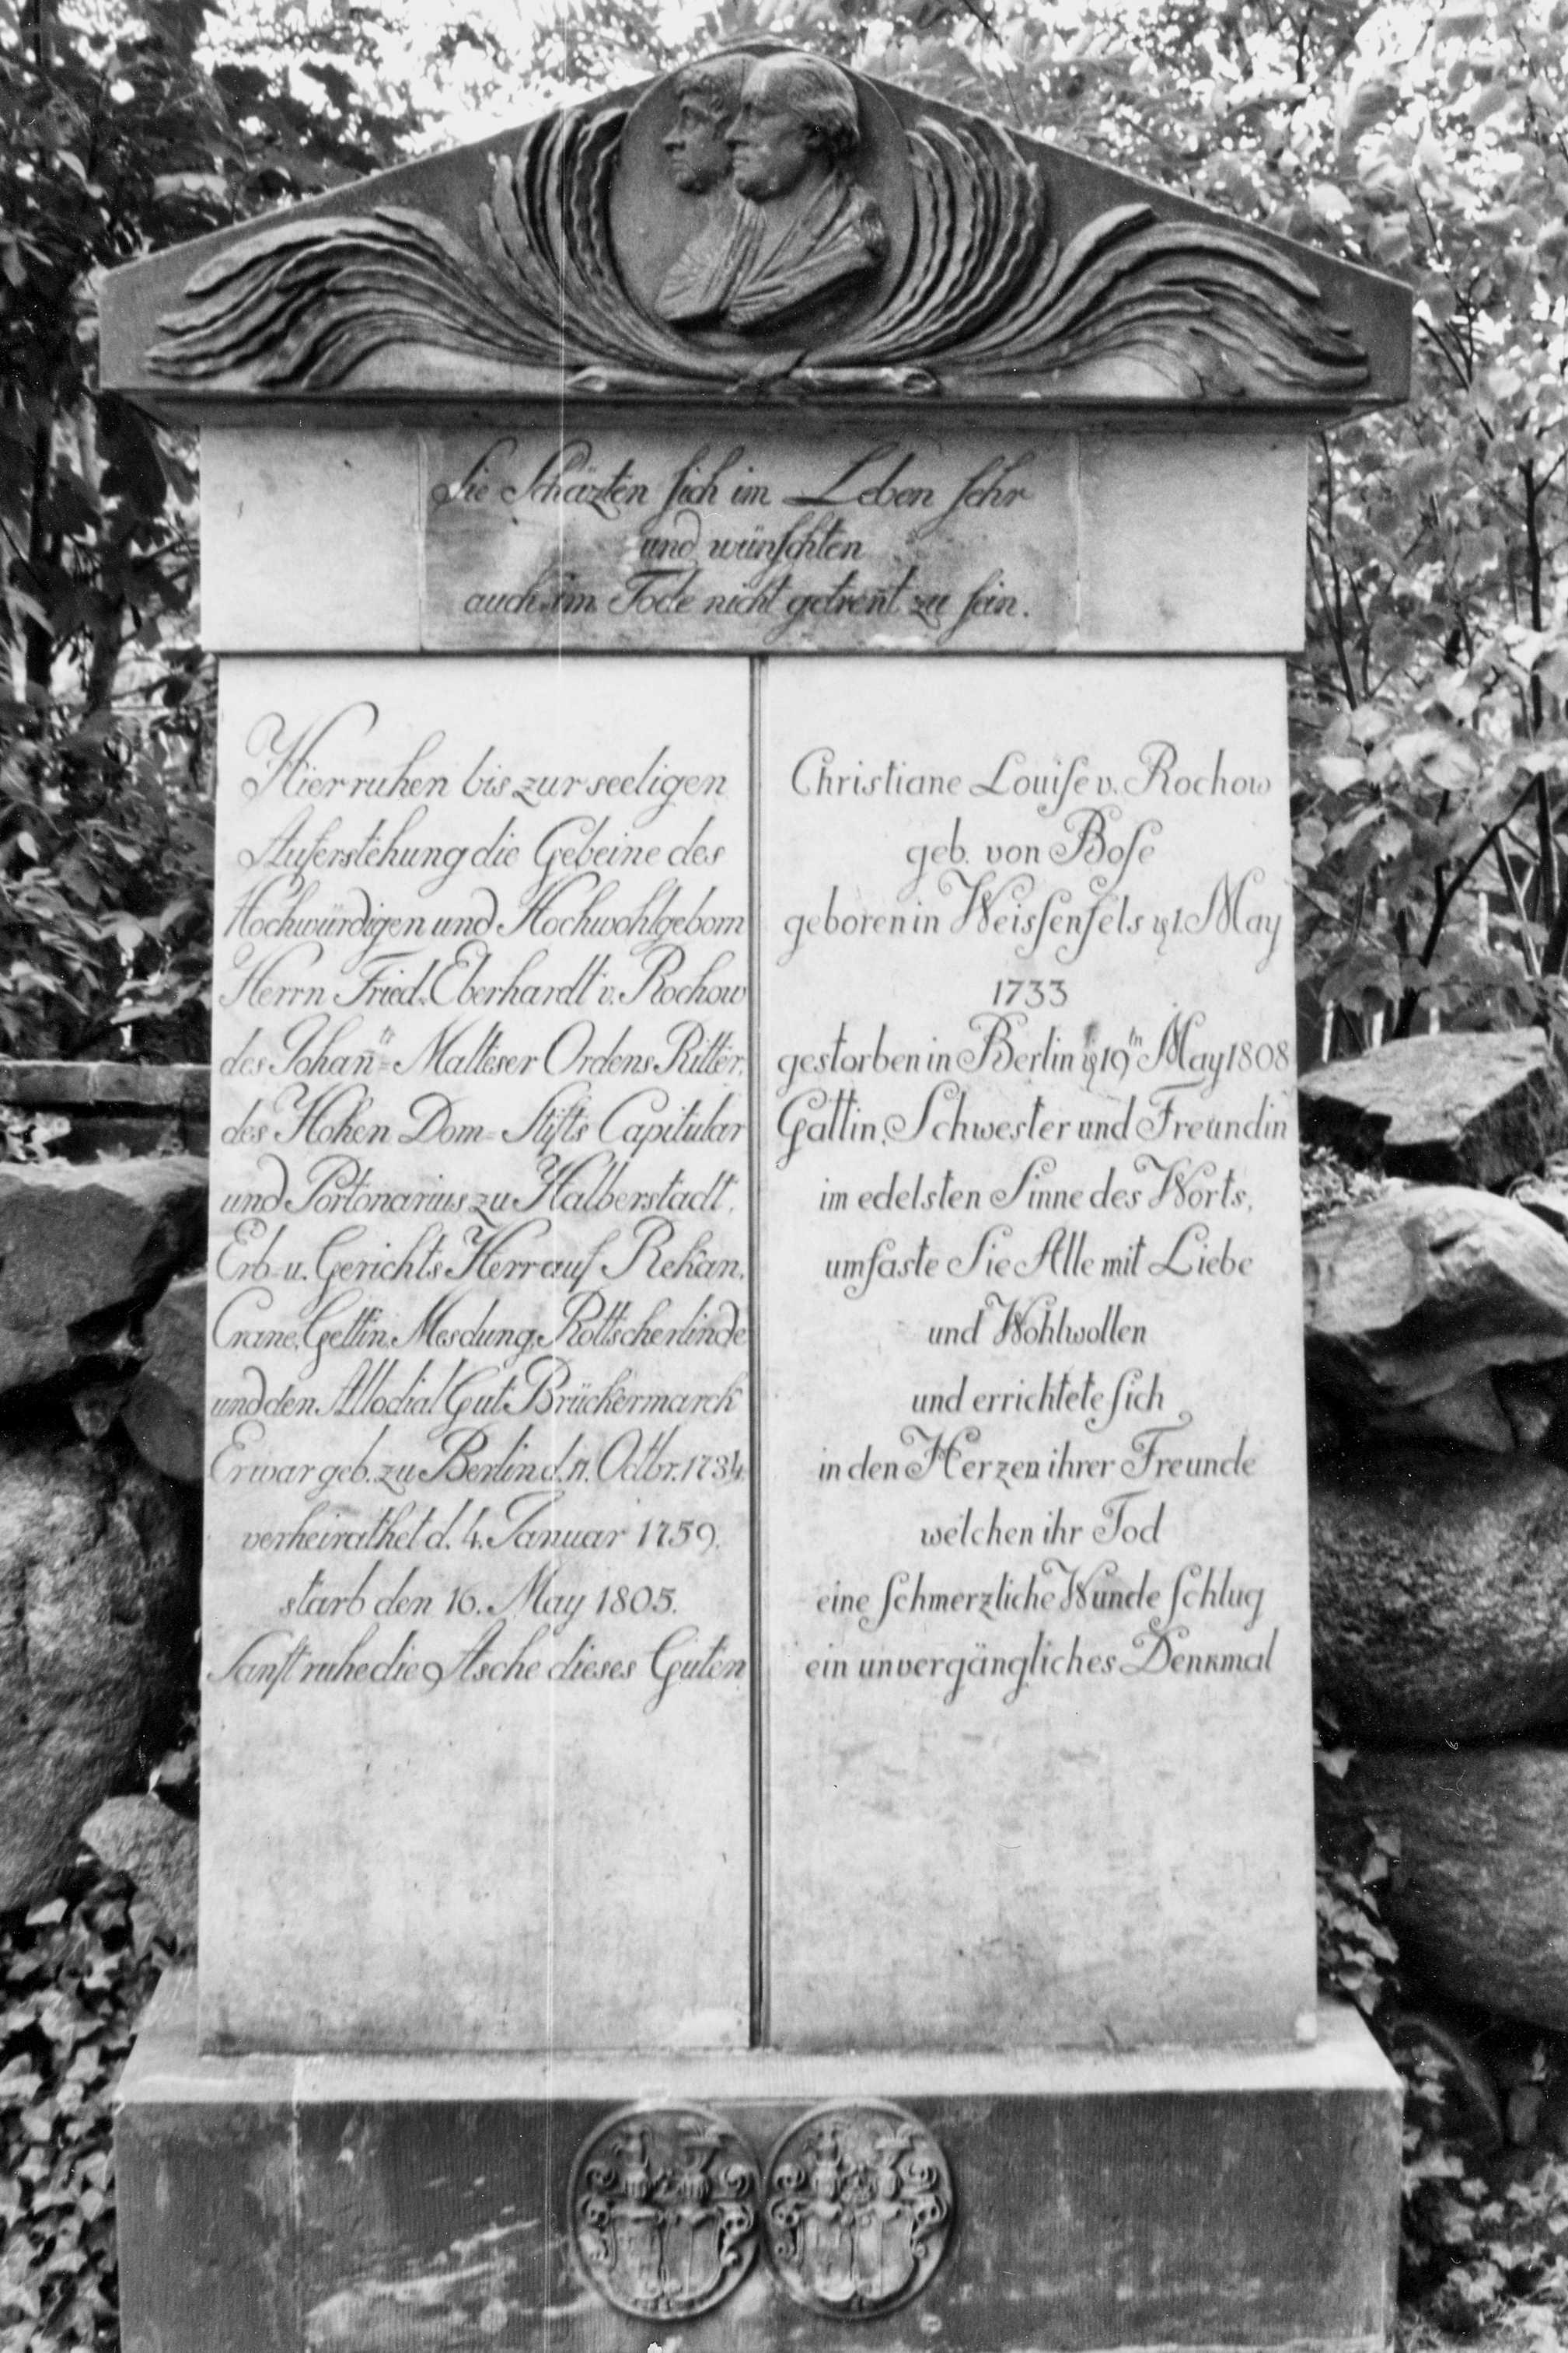 Sie Schäzten sich im Leben sehr
und wünschten
auch im Tode nicht getrent zu sein.
Hier ruhen bis zur seeligen
Auferstehung die Gebeine des
Hochwürdigen und Hochwohlgeborn
Herrn Fried. Eberhardt v. Rochow
des Johan̅= Malteser Ordens Ritter,
des Hohen Dom= Stifts Capitular
und Portonarius zu Halberstadt,
Erb- u. Gerichts Herr auf Rekan,
Crane, Gettin, Mesdung, Rottscherlinde
und den Allodial Gut Brückermarck
Er war geb. zu Berlin d. 11. Octbr. 1734.
verheirathet d. 4. Januar 1759.
starb den 16. May 1805.
Sanft ruhe die Asche dieses Guten.
Christiane Louise v. Rochow
geb. von Bose
geboren in Weissenfels d 1. May
1733
gestorben in Berlin d 19ᵗⁿ May 1808
Gattin, Schwester und Freundin
im edelsten Sinne des Worts,
umfaste Sie Alle mit Liebe
und Wohlwollen
und errichtete sich
in den Herzen ihrer Freunde
welchen ihr Tod
eine schmerzliche Wunde schlug
ein unvergängliches Denkmal